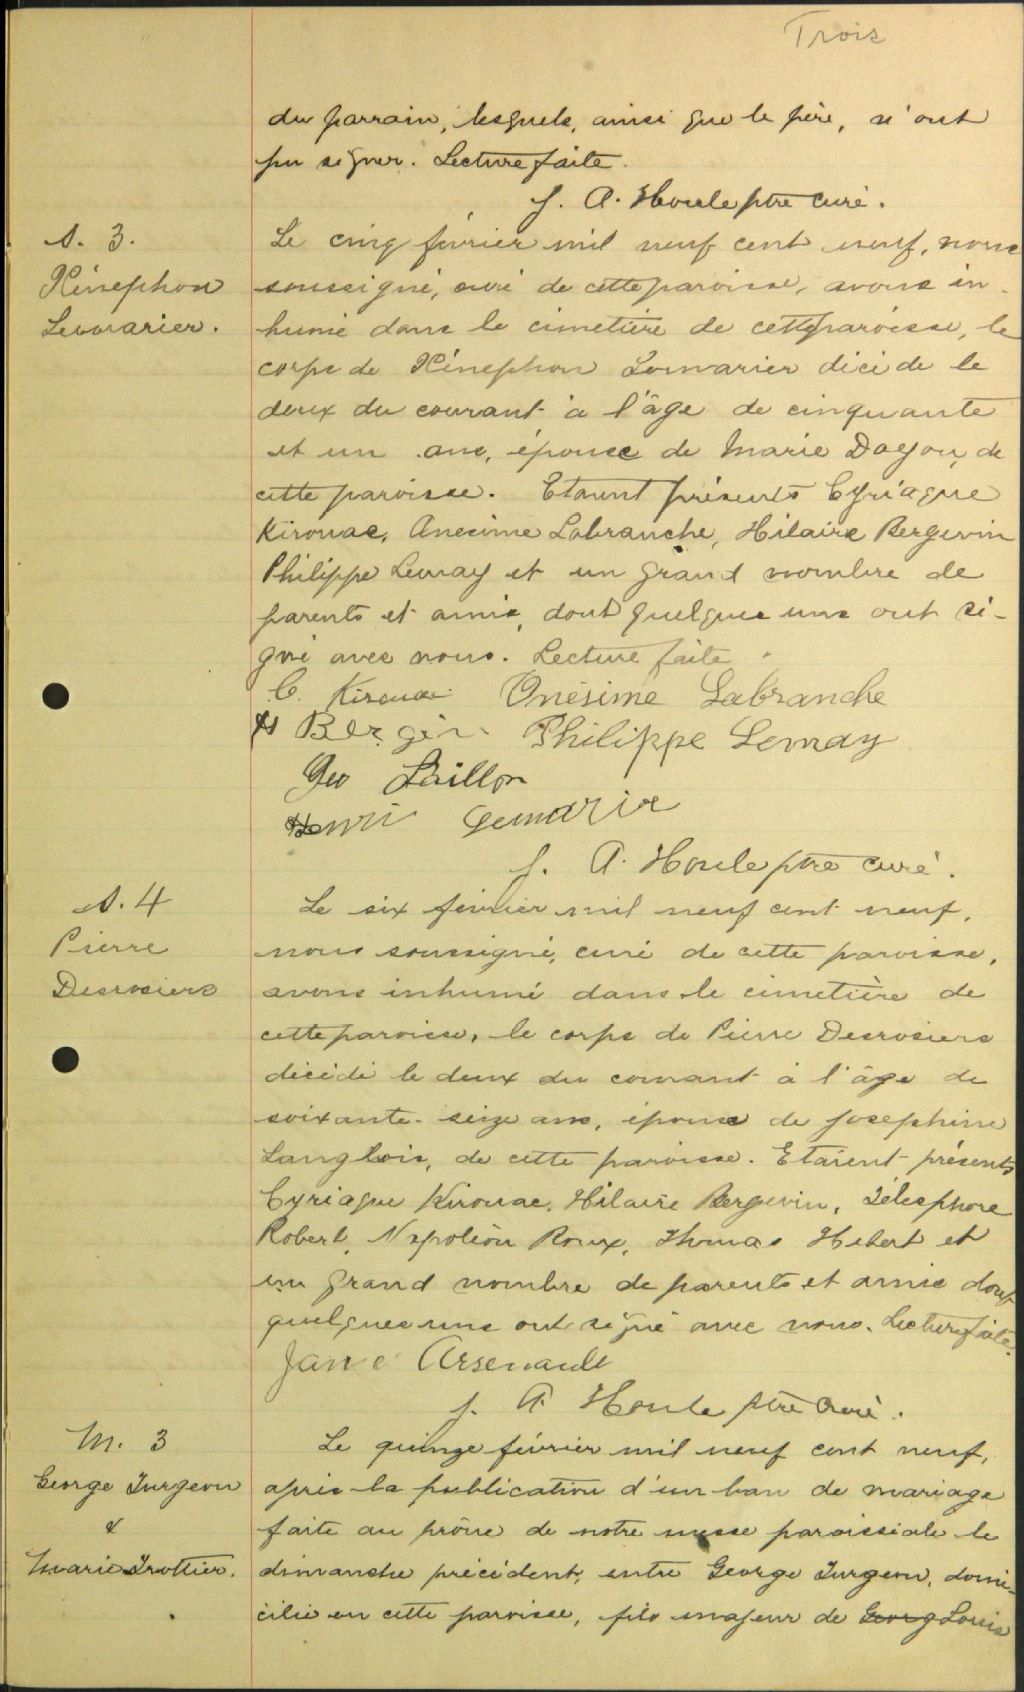 Trois
du parrain, lesquels, ainsi que le père, n'ont
pu signer. Lecture faite.
J. A. Houle ptre curé.
S. 3.
Xénephon
Lemarier.
Le cinq février mil neuf cent neuf, nous
soussigné, curé de cette paroisse, avons in-
humé dans le cimetière de cette paroisse, le
corps de Xénephon Lemarier décédé le
deux du courant à l'âge de cinquante
et un ans, époux de Marie Doyon, de
cette paroisse. Etaient présents Cyriaque
Kirouac, Anesime Labranche, Hilaire Bergevin
Philippe Lemay et un grand nombre de
parents et amis, dont quelques uns ont si-
gné avec nous. Lecture faite.
C. Kirouac Onésime Labranche
H Bergin Philippe Lemay
Geo
Henri Lemarier
J. A. Houle ptre curé.
S. 4
Pierre
Desrosiers
Le six février mil neuf cent neuf,
nous soussigné, curé de cette paroisse,
avons inhumé dans le cimetière de
cette paroisse, le corps de Pierre Desrosiers
décédé le deux du courant à l'âge de
soixante-seize ans, époux de Josephine
Langlois, de cette paroisse. Etaient présents
Cyriaque Kirouac, Hilaire Bergevin, Télesphore
Robert, Napoléon Roux, Thomas Hebert et
un grand nombre de parents et amis dont
quelques uns ont signé avec nous. Lecture faite.
Arsenault
J. A. Houle ptre curé.
M. 3
George Turgeon
&
Marie Trottier.
Le quinze février mil neuf cent neuf,
après la publication d'un ban de mariage
faite au prône de notre messe paroissiale le
dimanche précédent, entre George Turgeon, domi-
cilié en cette paroisse, fils majeur de Georg Louis